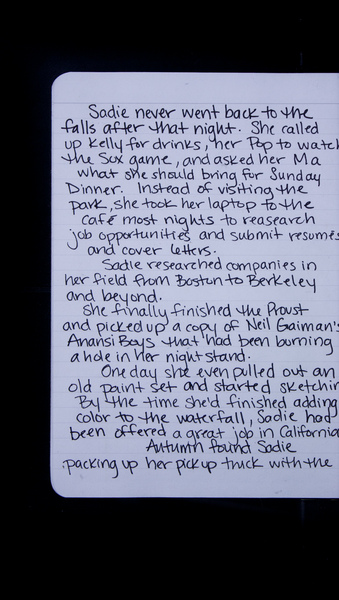 Sadie never went back to the
falls after that night. She called
up Kelly for drinks, her Pop to watch
the Sox game, and asked her Ma
what she should bring for Sunday
Dinner. Instead of visiting the
park, she took her laptop to the
café most nights to reasearch
job opportunities and submit resumés
and cover letters.
Sadie researched companies in
her field from Boston to Berkeley
and beyond.
She finally finished the Proust
and picked up a copy of Neil Gaiman's
Anansi Boys that had been burning
a hole in her night stand.
One day she even pulled out an
old paint set and started sketchin
By the time she'd finished adding
color to the waterfall, Sadie had
been offered a great job in California
Autumn found Sadie
packing up her pickup truck with the